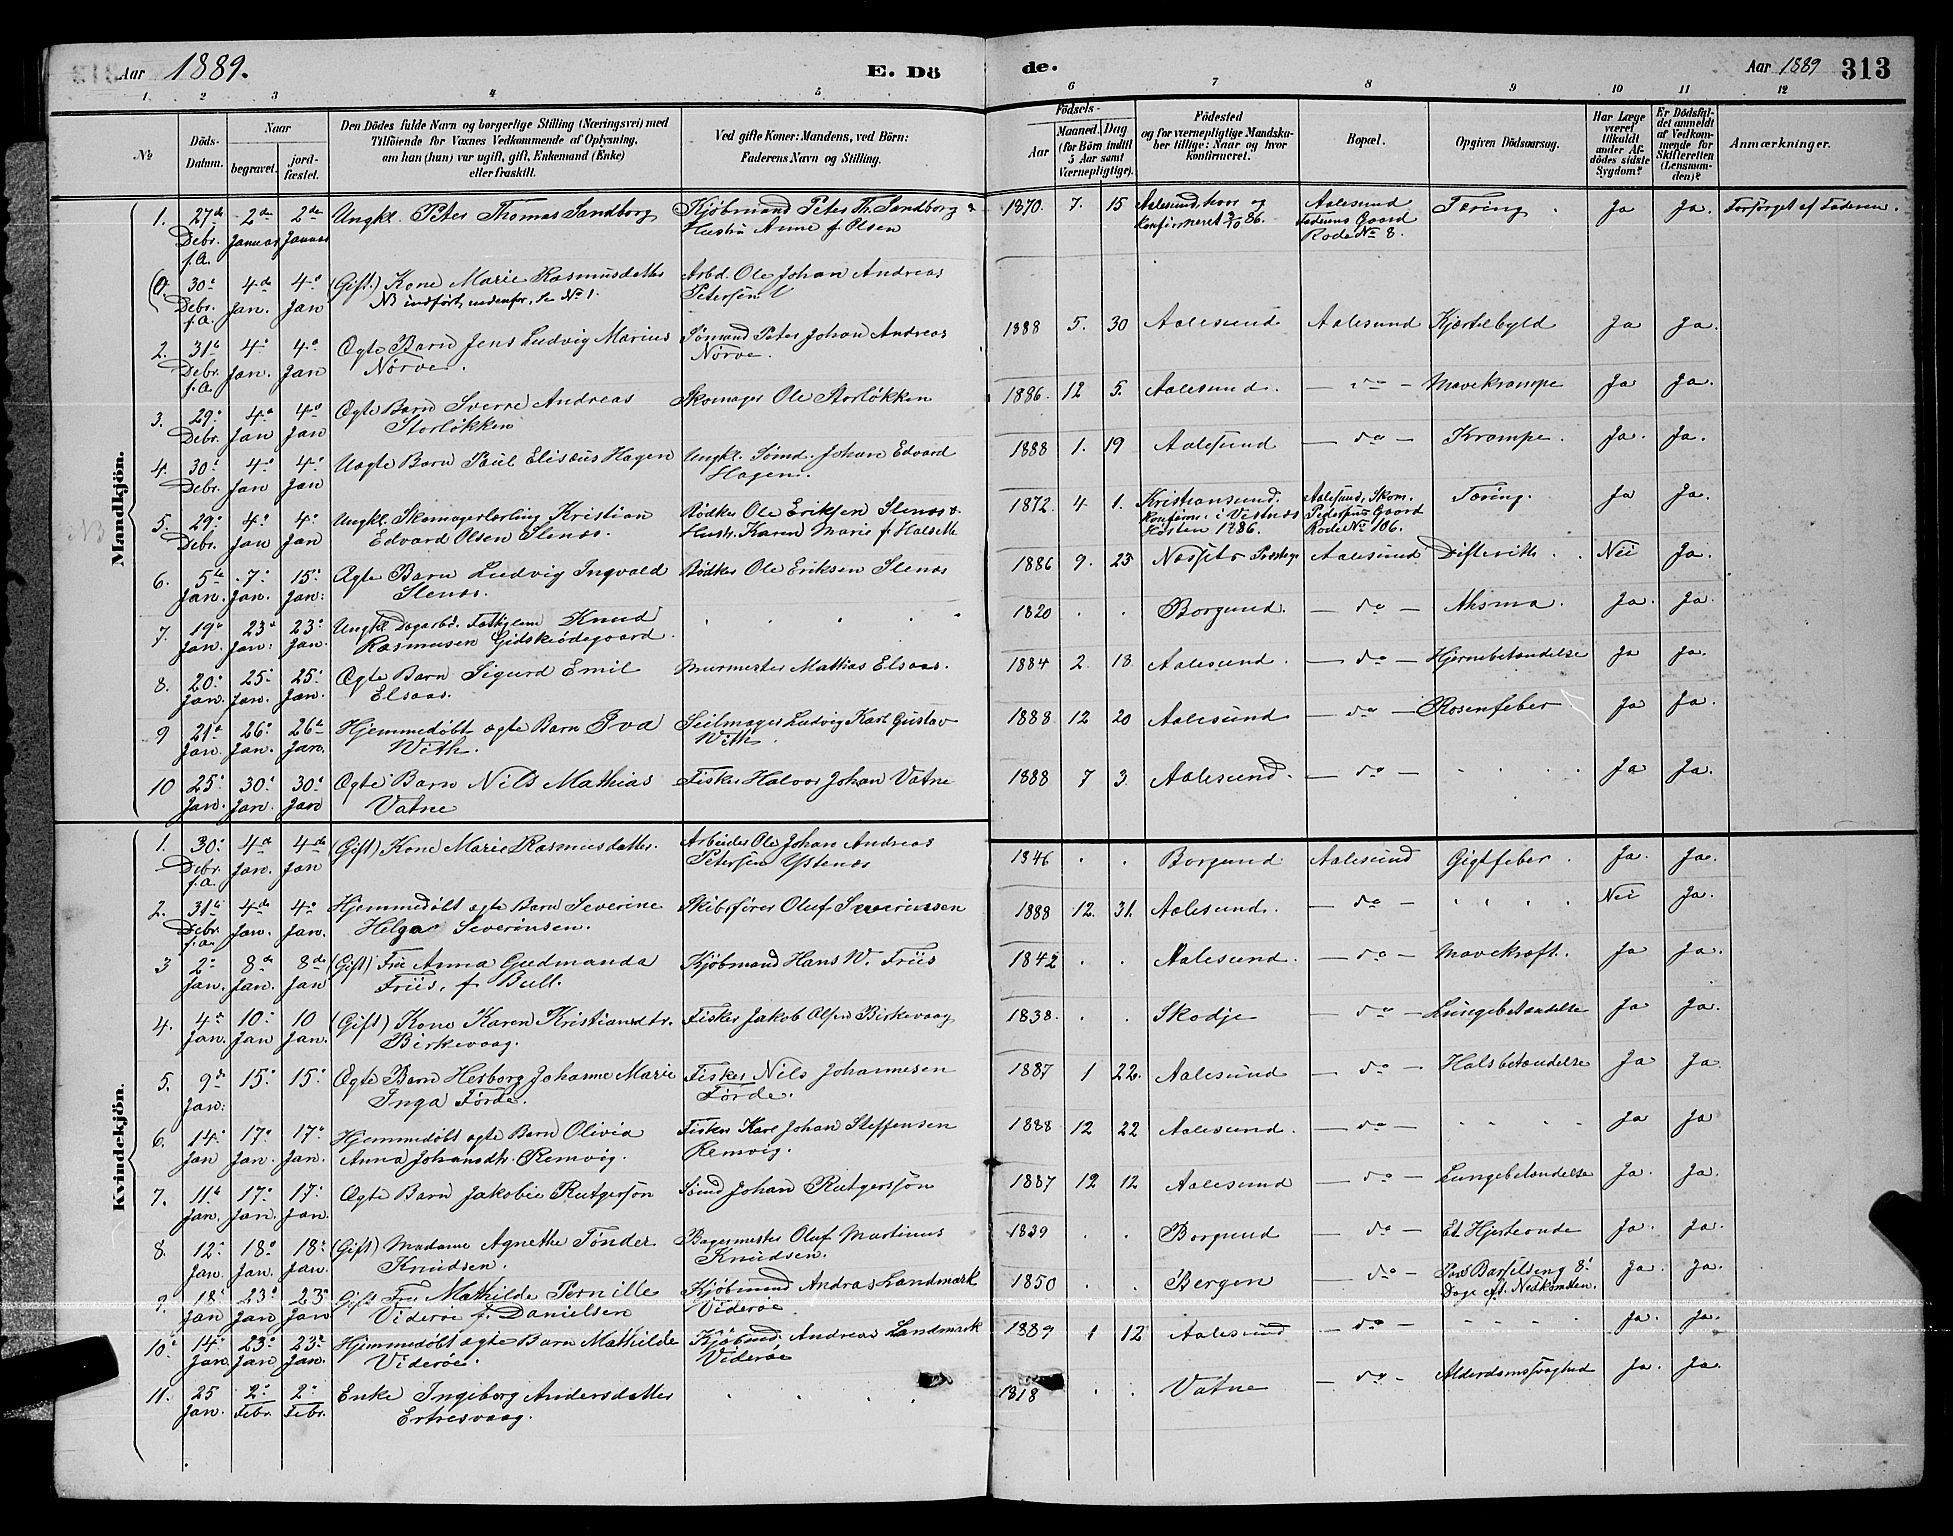 Aar 1889. E. Döde. Aar 1889 313
1. 2 3 4 5 6 7 8 9 10 11 12
№
Döds-Datum.
Naar
begravet.
jord-fæstet.
Den Dödes fulde Navn og borgerlige Stilling (Næringsvei) med
Tilföiende for Voxnes Vedkommende af Oplysning,
om han (hun) var ugift, gift, Enkemand (Enke)
eller fraskilt.
Ved gifte Koner: Mandens, ved Börn:
Faderens Navn og Stilling.
Födsels-
Aar
Maaned. Dag
(for Börn indtil
5 Aar samt
Værnepligtige).
Födested
og for værnepligtige Mandska-
ber tillige: Naar og hvor
konfirmeret.
Bopæl.
Opgiven Dödsaarsag.
Har Læge
været
tilkaldt
under Af-
dödes sidste
Sygdom?
Er Dödsfal-
det anmeldt
af Vedkom-
mende for
Skifteretten
(Lensman-
den)?
Anmærkninger.
Mandkjön.
1. 27de Debr. f.A. 2de Januar 2de Januar Ungkl. Peter Thomas Sandborg Kjöbmand Peter Th. Sandborg & Hustru Anne f. Olsen 1870. 7. 15 Aalesund, hvor og Konfirmeret 3/10 86. Aalesund Faderens Gaard Rode No 8. Tæring. Ja Ja. Forsørget af Faderen.
(0. 30 Debr. f.A. 4de Jan. 4 Jan (Gift) Kone Marie Rasmusdatter NB indført nedenfor, se No 1. Arbd. Ole Johan Andreas Petersen
2. 31 Debr. f.A. 4 Jan. 4 Jan Ægte Barn Jens Ludvig Marius Nörve. Sømand Peter Johan Andreas Nörve. 1888 5. 30 Aalesund Aalesund Kjertelbyld Ja Ja.
3. 29 Debr. 4 Jan 4 Jan Ægte Barn Sverre Andreas Storløkken Skomager Ole Storløkken 1886. 12 5. Aalesund. — do — Mavekrampe Ja Ja.
4. 30 Debr. 4 Jan 4 Jan Uægte Barn Paul Elisæus Hagen Ungkl. Sømd. Johan Edvard Hagen. 1888 1. 19 Aalesund — do — Krampe. Ja. Ja.
5. 29 Debr. 4 Jan 4 Jan Ungkl. Skomagerlærling Kristian Edvard Olsen Stenæs. Bødker Ole Eriksen Stenæs & Hustr. Karen Marie f. Halseth 1872. 4 1. Kristiansund. Konfirm. i Vestnæs Høsten 1886. Aalesund, Skom. Pedersens Gaard Rode No 106. Tæring. Ja Ja.
6. 5te Jan. 7 Jan. 15 Jan. Ægte Barn Ludvig Ingvald Stenæs. Bødker Ole Eriksen Stenæs 1886 9. 23 Næsset Præstegj. Aalesund Difterith. Nei Ja.
7. 19 Jan. 23 Jan. 23 Jan. Ungkl. Dagarbd. Fattiglem Knud Rasmussen Gidskeødegaard. 1820 . . Borgund. — do — Ahsma. Ja. Ja.
8. 20 Jan. 25 Jan. 25 Jan. Ægte Barn Sigurd Emil Elsaas. Murmester Mathias Elsaas. 1884 2. 18. Aalesund. — do — Hjernebetændelse Ja Ja.
9 21 Jan. 26 Jan. 26 Jan. Hjemmedöbt ægte Barn Iva With. Seilmager Ludvig Karl Gustav With. 1888 12 20 Aalesund — do — Rosenfeber Ja Ja.
10 25 Jan. 30 Jan. 30 Jan Ægte Barn Nils Mathias Vatne Fisker Halvor Johan Vatne 1888 7 3. Aalesund. — do — Ja Ja.
Kvindekjön.
1. 30 Debr. f.a. 4de Jan. 4de Jan (Gift) Kone Marie Rasmusdatter. Arbeider Ole Johan Andreas Petersen Ystenæs 1846 . . Borgund Aalesund Gigtfeber. Ja. Ja.
2. 31 Debr. f.a. 4de Jan. 4 Jan. Hjemmedöbt ægte Barn Severine Helga Severinsen. Skibsfører Oluf Severinssen 1888 12. 31. Aalesund. — do — Nei Ja.
3 2 Jan. 8de Jan. 8de Jan (Gift) Frue Anna Gudmanda Friis, f. Bull. Kjöbmand Hans W. Friis 1842 . . Aalesund. — do — Mavekræft. Ja Ja.
4. 4 Jan. 10 Jan 10 Jan. (Gift) Kone Karen Kristiansdtr. Birkevaag. Fisker Jakob Olsen Birkevaag 1838. . . Skodje — do — Lungebetændelse Ja Ja.
5. 9 Jan. 15 15 Ægte Barn Herborg Johanne Marie Inga Förde. Fisker Nils Johannesen Förde. 1887 1 22. Aalesund — do — Halsbetændelse Ja Ja.
6. 14 Jan 17 Jan. 17 Jan. Hjemmedöbt ægte Barn Olivia Anna Johansdtr. Remvig. Fisker Karl Johan Steffensen Remvig. 1888 12 22 Aalesund. — do — Ja Ja
7. 11 Jan. 17 Jan. 17 Jan. Ægte Barn Jakobie Rutgersön Sömd Johan Rutgerssön 1887 12 12 Aalesund — do — Lungebetændelse Ja. Ja.
8. 12 Jan. 18 Jan. 18 Jan. (Gift) Madame Agnethe Tönder Knudsen. Bagermester Oluf Martinus Knudsen. 1839 . . Borgund — do — Et Hjerteonde Ja. Ja.
9. 18 Jan 23 Jan 23 Jan Gift Frue Mathilde Pernille Videröe f. Danielsen Kjöbmand Andreas Landmark Videröe. 1850 . . Bergen — do — Paa Barselseng 8 Dage eft. Nedkomsten. Ja. Ja.
10 14 Jan. 23 Jan 23 Jan. Hjemmedöbt ægte Barn Mathilde Videröe. Kjöbmd. Andreas Landmark Videröe 1889 1 12 Aalesund — do — Ja. Ja.
11. 25 Jan. 2 Febr. 2 Febr. Enke Ingeborg Andersdatter Ertresvaag. 1818 . . Vatne — do — Alderdomssvaghed Ja. Ja.